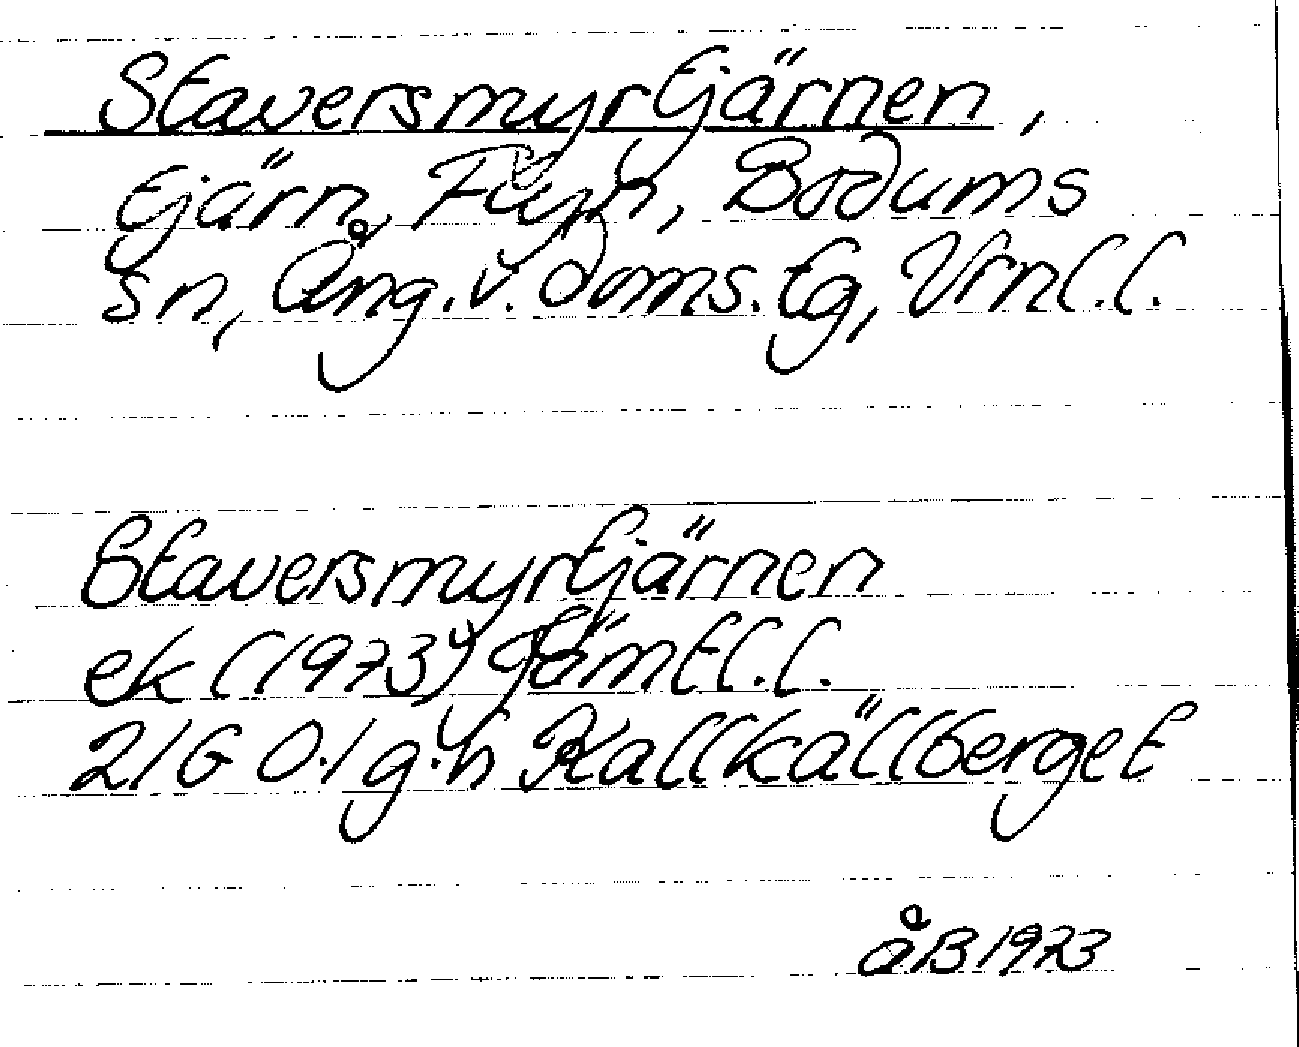 Staversmyrtjärnen,
tjärn, Flyn, Bodums
sn, Ång. v. doms. tg, Vrnl.l.
Staversmyrtjärnen
ek (1973) Jämtl.l.
21G 0.1 g.h Kallkällberget
åB 1973